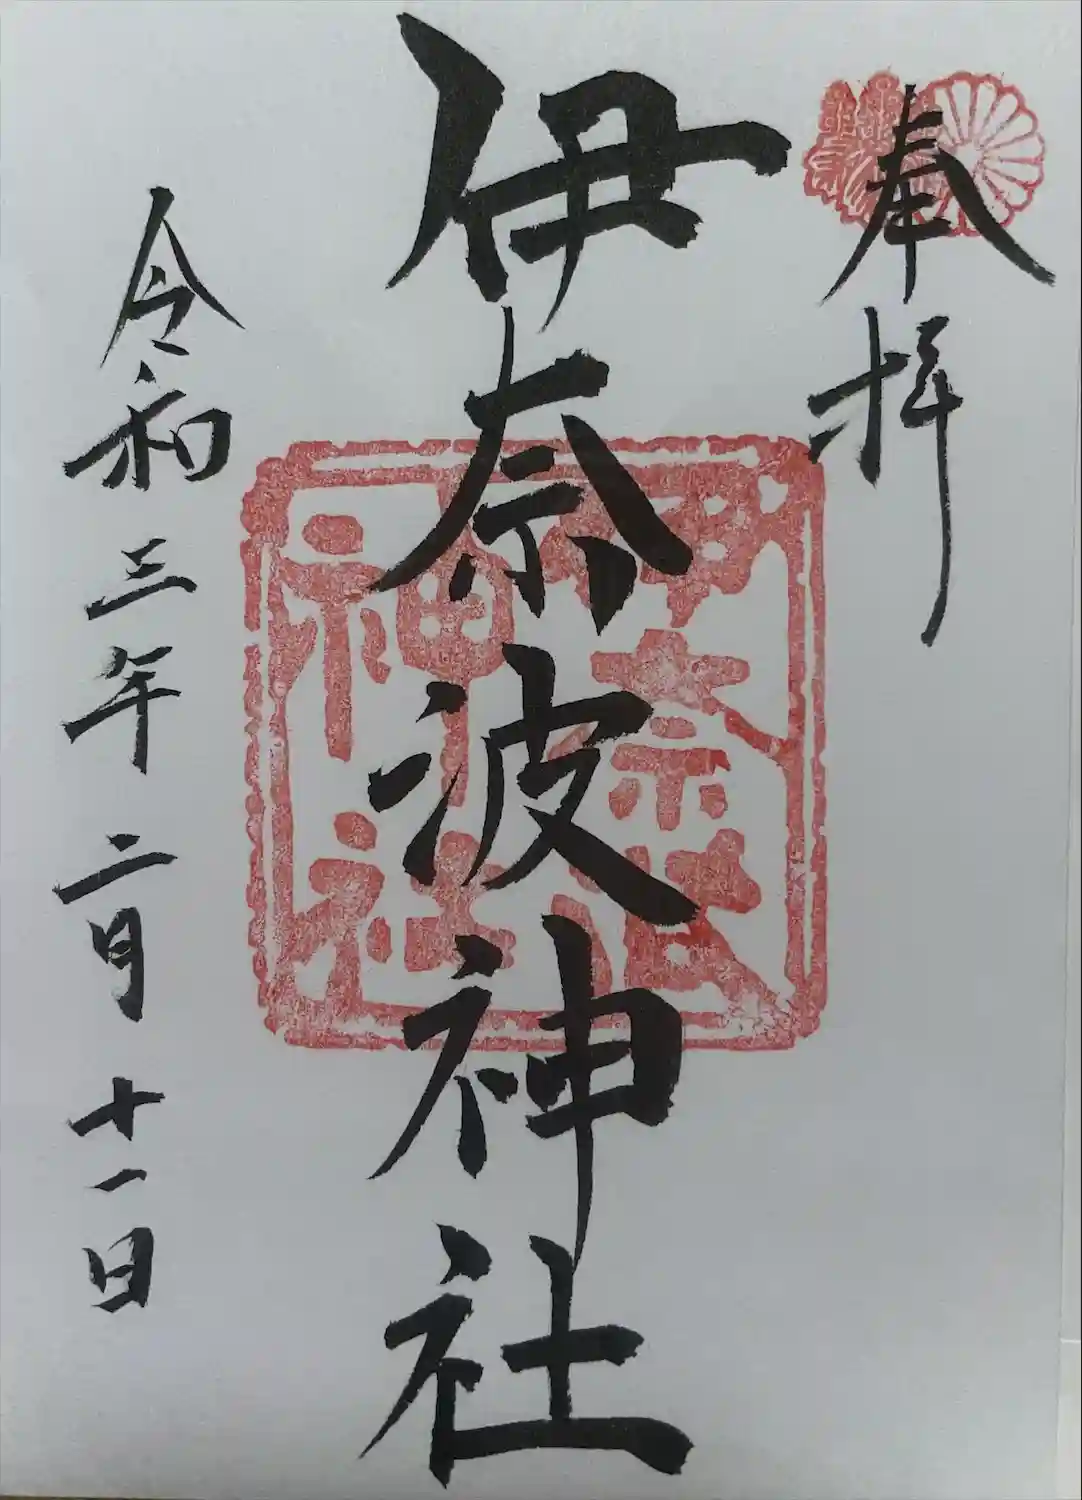 奉拝
伊奈波神社
伊奈波
神社
令和三年二月十一日